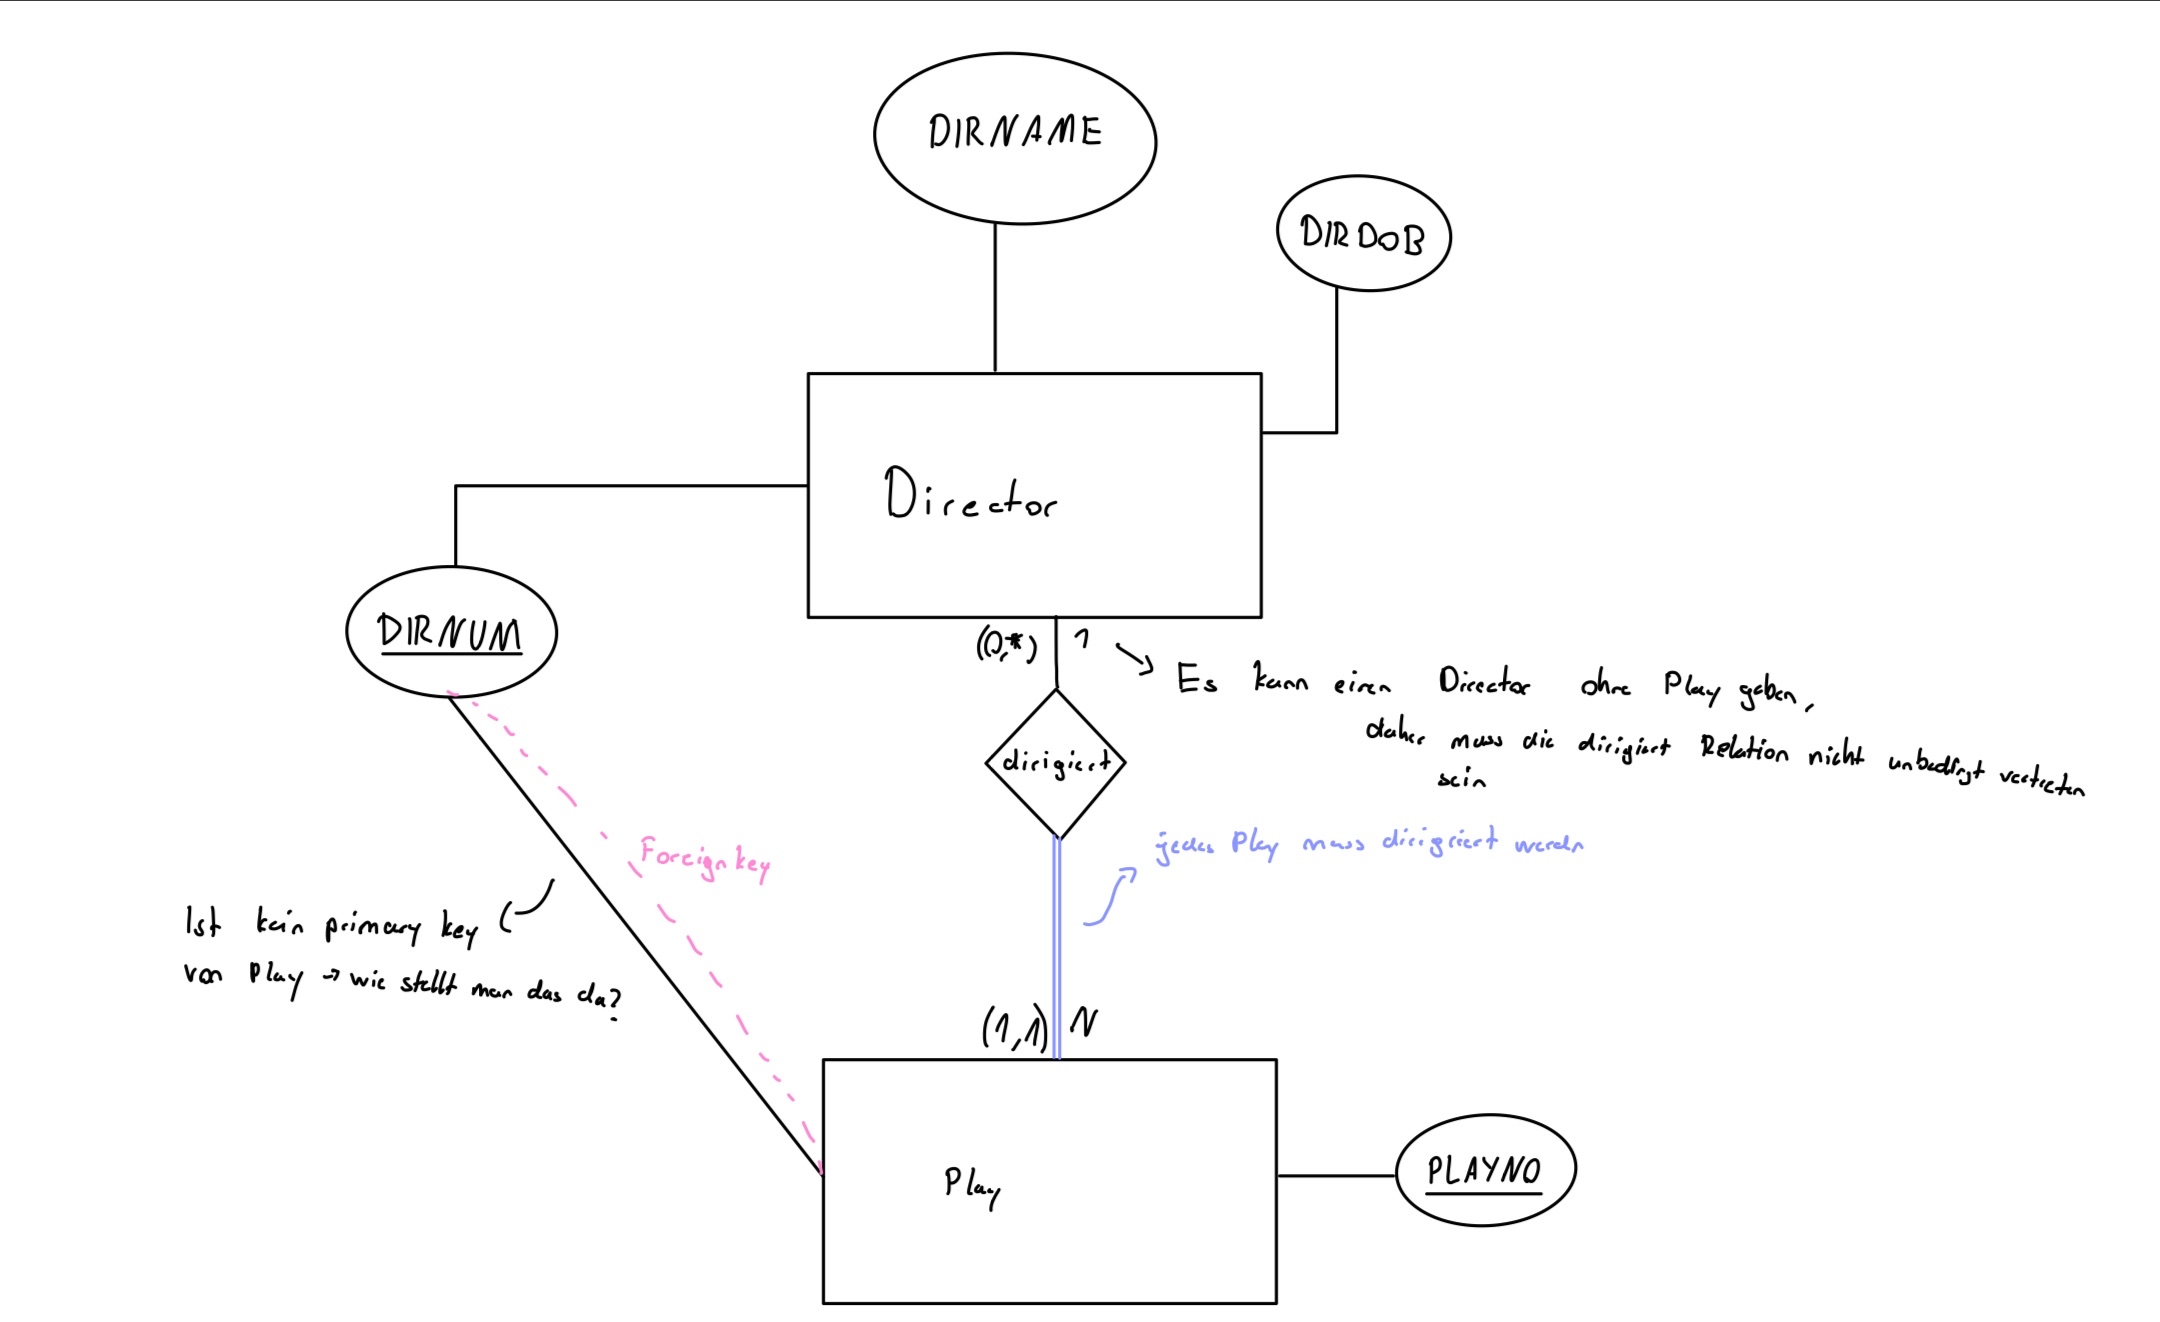 DIRNAME
DIRDOB
Director
DIRNUM
(0,*) 1
Es kann einen Director ohne Play geben,
daher muss die dirigiert Relation nicht unbedingt vertreten
sein
dirigiert
jedes Play muss dirigiert werden
Foreign key
Ist kein primary key
von Play → wie stellt man das da?
(1,1) N
Play
PLAYNO